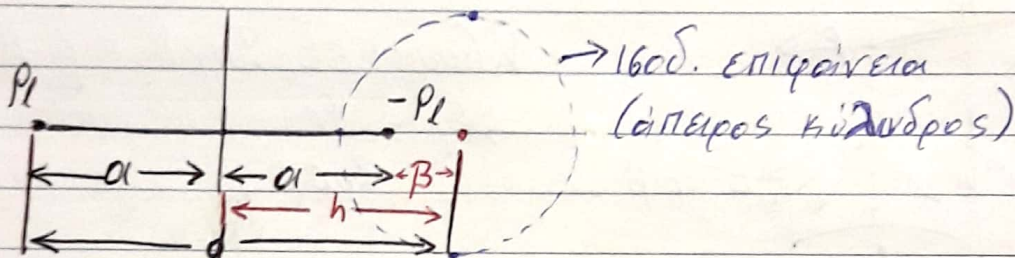 → Ισοδ. επιφάνεια
(άπειρος κύλινδρος)
ρℓ
-ρℓ
α
α
β
h
d